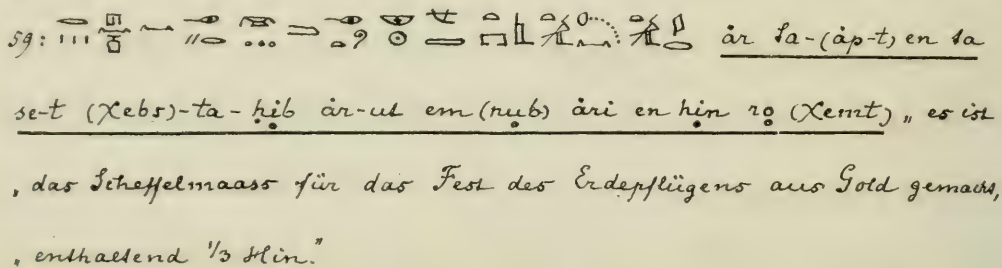 59: år ta-(åp-t) en ta
se-t (Xebs)-ta-ḥib år-ut em (nụb) åri en hịn rọ (Xemt) „ es ist
„ das Scheffelmaass für das Fest des Erdepflügens aus Gold gemacht,
„ enthaltend 1/3 Hin."